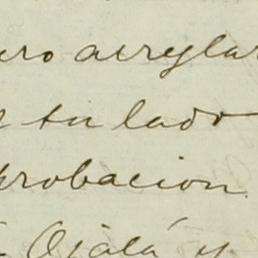 uro arreglar
tu lado
probacion.
Ojalá y